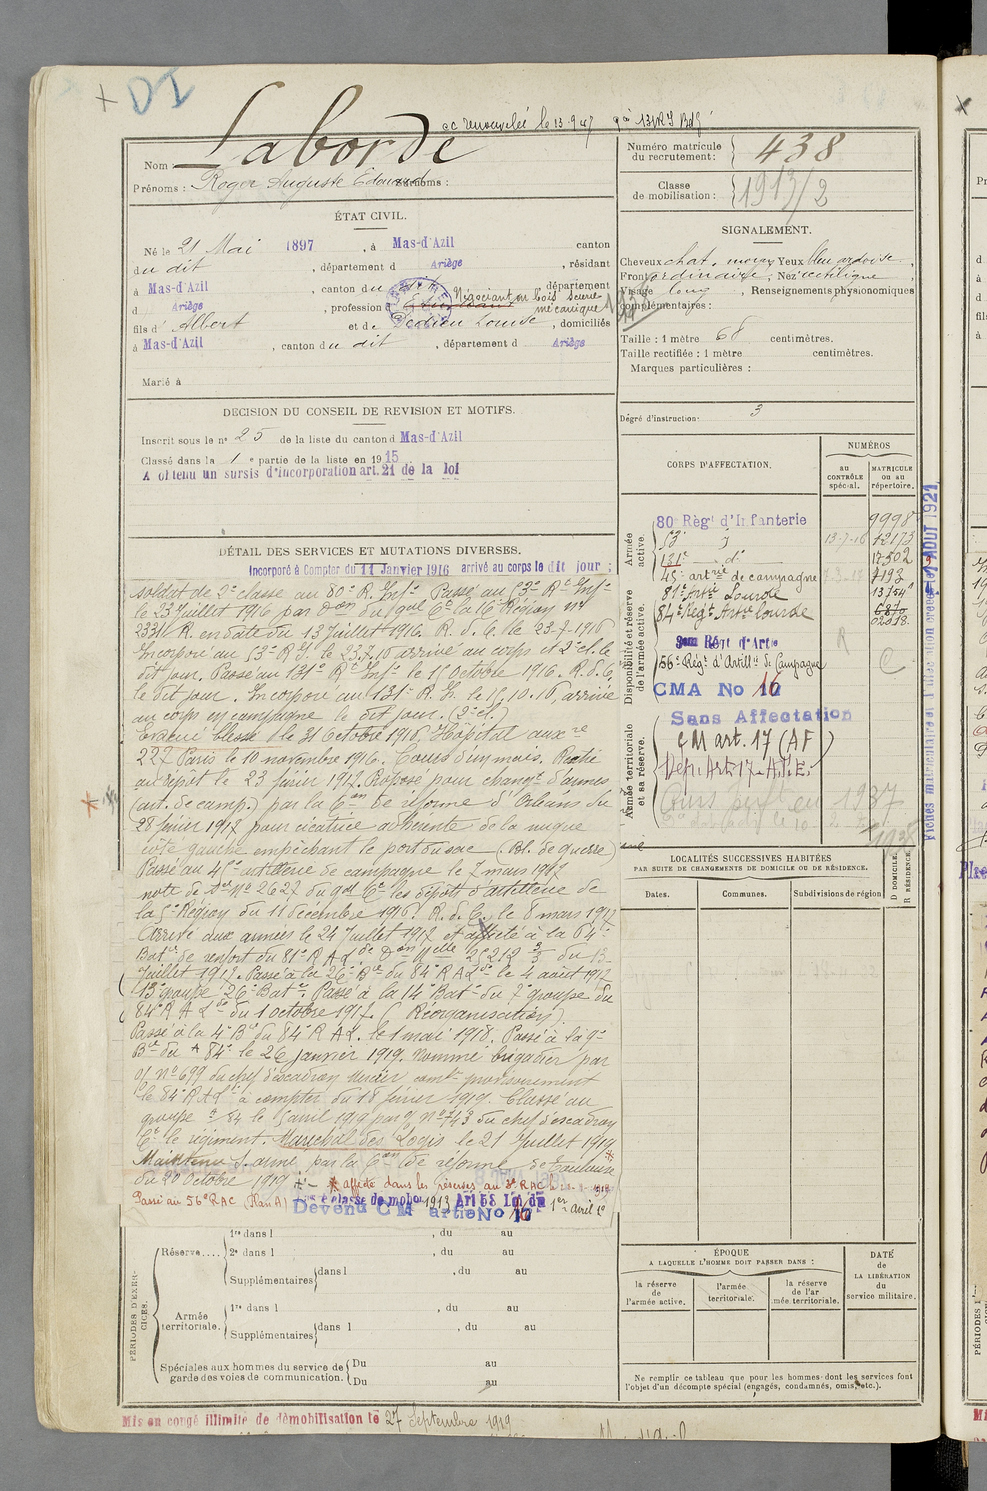 DI
Laborde
Nom
Prénoms : Roger Auguste Edouard Surnoms :
Numéro matricule du recrutement : 438
Classe de mobilisation : 1913/2
ÉTAT CIVIL.
Né le 21 Mai 1897, à Mas-d'Azil canton
du dit, département d Ariège, résidant
à Mas-d'Azil, canton du dit département
d Ariège, profession d Etudiant Négociant en bois scierie mécanique
fils d' Albert et de Dedieu Louise, domiciliés
à Mas-d'Azil, canton du dit, département d Ariège
Marié à
SIGNALEMENT.
Cheveux chat. moyen Yeux bleu ardoise
Front ordinaire ; Nez rectiligne ;
Visage long, Renseignements physionomiques
complémentaires :
Taille : 1 mètre 68 centimètres.
Taille rectifiée : 1 mètre centimètres.
Marques particulières :
Degré d'instruction : 3
DECISION DU CONSEIL DE REVISION ET MOTIFS.
Inscrit sous le n° 25 de la liste du canton d Mas-d'Azil
Classé dans la 1e partie de la liste en 1915
A obtenu un sursis d'incorporation art. 21 de la loi
DÉTAIL DES SERVICES ET MUTATIONS DIVERSES.
Incorporé à Compter du 11 Janvier 1916 arrivé au corps le dit jour ;
soldat de 2e classe au 80e R. Infie Passé au 53e Rt Infie
le 23 Juillet 1916 par Don du Gal Ct la 16e Région No
2331 R. en date du 13 Juillet 1916. R. d. C. le 23-7-1916
Incorporé au 53e R.I. le 23.7.16 arrivé au corps et 2e cl. le
dit jour. Passé au 131e Rt Infie le 15 Octobre 1916. R. d. C.
le dit jour. Incorporé au 131e R. In. le 15.10.16, arrivé
au corps en campagne le dit jour. (2e cl.)
Evacué blessé le 31 Octobre 1916. Hôpital auxre
227 Paris le 10 novembre 1916. Cours d'un mois. Rentré
au dépôt le 23 février 1917. Proposé pour changt d'armes
(art. de camp.) par la Con de réforme d'Orléans du
28 février 1917 pour cicatrice adhérente de la nuque
côté gauche empêchant le port du sac (Bl. de guerre)
Passé au 45e artillerie de campagne le 7 mars 1917
note de Sce No 2627 du Gal Ct les dépôts d'artillerie de
la 5e Région du 11 décembre 1916. R. d. C. le 8 mars 1917
Arrivé aux armées le 24 Juillet 1917 et affecté à la 64e
Batie de renfort du 81e R A Lde Don Melle 25212 3/3 du 13
Juillet 1917. Passé à la 26e Bie du 84e R A Lde le 4 août 1917
(13e groupe 26e Batie. Passé à la 14e Batie du 7e groupe du
84e R A Lde du 1 octobre 1917. (Réorganisation)
Passé à la 4e Bie du 84e R A L. le 1 mai 1918. Passé à la 9e
Bie du 84e le 26 Janvier 1919. Nommé brigadier par
O/ No 699 du chef d'escadron Mercier comt provisoirement
le 84e R A Ld à compter du 18 février 1919. Classé au
groupe 84 le 5 avril 1919 par O/ No 743 du chef d'escadron
Ct le régiment. Maréchal des Logis le 21 Juillet 1919
Maintenu S. armé par la Con de réforme de Toulouse
du 20 Octobre 1919
affecté dans les réserves au 3e RAC
Passé au 56e RAC (Plan A) classe de mobon 1913 Art 58 Loi du 1er avril 1923
Devenu CM artie No 17
CORPS D'AFFECTATION.
NUMÉROS
au CONTRÔLE spécial.
MATRICULE ou au répertoire.
Armée active.
80e Régt d'Infanterie 9998
53e 13-7-16 12173
131e do 17502
45e artie de campagne 7-3-17 7193
81e Artie Lourde 13754
84e Régt Artie lourde 6870
02018
Disponibilité et réserve de l'armée active.
3me Régt d'Artie
56e Régt d'Artillie de Campagne R C
CMA No 16
Sans Affectation
Armée territoriale et sa réserve.
CM art. 17 (AF)
Dép. Art. 17 - A.T.E.
1937
1938
LOCALITÉS SUCCESSIVES HABITÉES
PAR SUITE DE CHANGEMENTS DE DOMICILE OU DE RÉSIDENCE.
D DOMICILE. R RÉSIDENCE.
Dates. Communes. Subdivisions de région
PÉRIODES D'EXERCICES.
Réserve.... 1re dans l , du au
2e dans l , du au
Supplémentaires dans l , du au
Armée territoriale. 1re dans l , du au
Supplémentaires dans l , du au
Spéciales aux hommes du service de garde des voies de communication. Du au
Du au
ÉPOQUE
A LAQUELLE L'HOMME DOIT PASSER DANS :
la réserve de l'armée active.
l'armée territoriale.
la réserve de l'armée territoriale.
DATE de LA LIBÉRATION du service militaire.
Ne remplir ce tableau que pour les hommes dont les services font
l'objet d'un décompte spécial (engagés, condamnés, omis, etc.).
Mis en congé illimité de démobilisation le 27 Septembre 1919